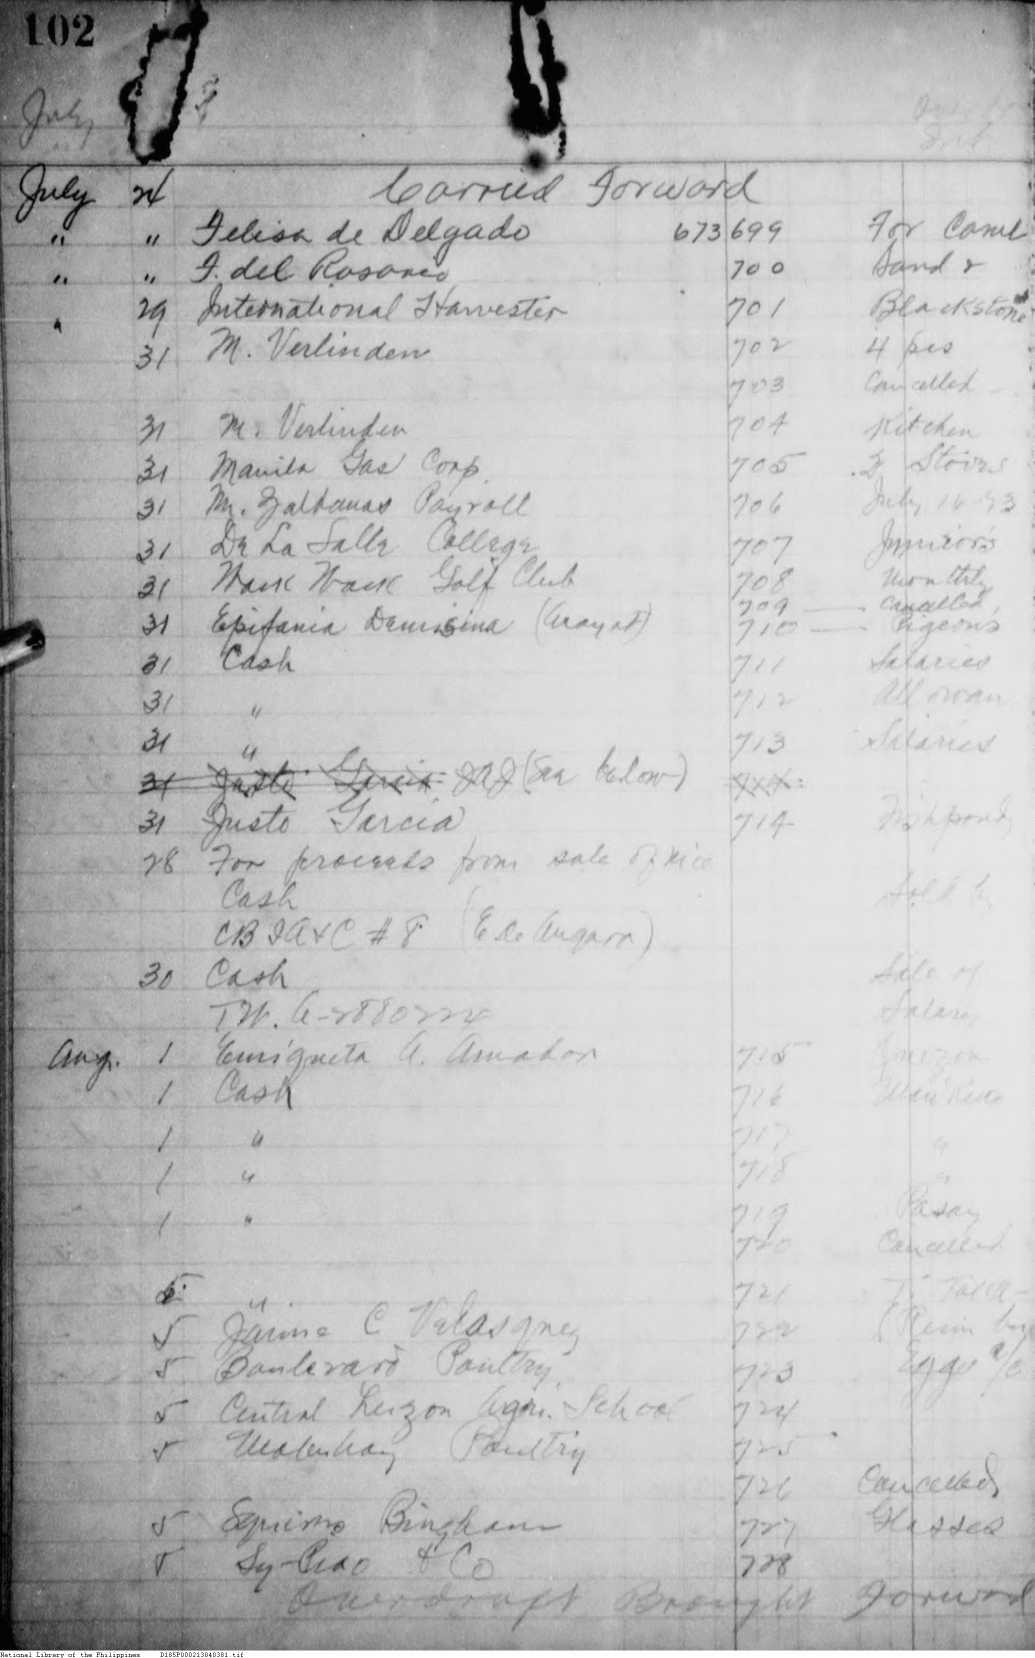 102
July
July 24 Carried Forward
" " Felisa de Delgado 673 699 For Caml
" " F. del Rosario 700 Sand &
" 29 International Harvester 701 Blackstone
31 M. Verlinden 702 4 pcs
703 Cancelled
31 M. Verlinden 704 Kitchen
31 Manila Gas Corp. 705 Stoves
31 Payroll 706 July 16-
31 De La Salle College 707 Junior's
31 Wack Wack Golf Club 708 Monthly
709 — Cancelled
31 Epifania (Arayat) 710 — Pigeons
31 Cash 711 Salaries
31 " 712 Allowan
31 " 713 Salaries
31 Justo Garcia (See below)
31 Justo Garcia 714 Fishponds
28 For proceeds from sale of rice
Cash Sold
CB IA&C # 8 (E de Angara)
30 Cash Sale of
TW. A-2880224 Salary
Aug. 1 Enriqueta A. Amador 715
1 Cash 716
1 " 717 "
1 " 718 "
1 " 719 Pasay
720 Cancelled
5 " 721
5 Jaime C Velasquez 722
5 Boulevard Poultry 723 Eggs
5 Central Luzon Agri. School 724
5 Poultry 725
726 Cancelled
5 Bingham 727 Glasses
5 Sy-Piao & Co 728
Overdraft Brought Forward
National Library of the Philippines D185P000213040381.tif